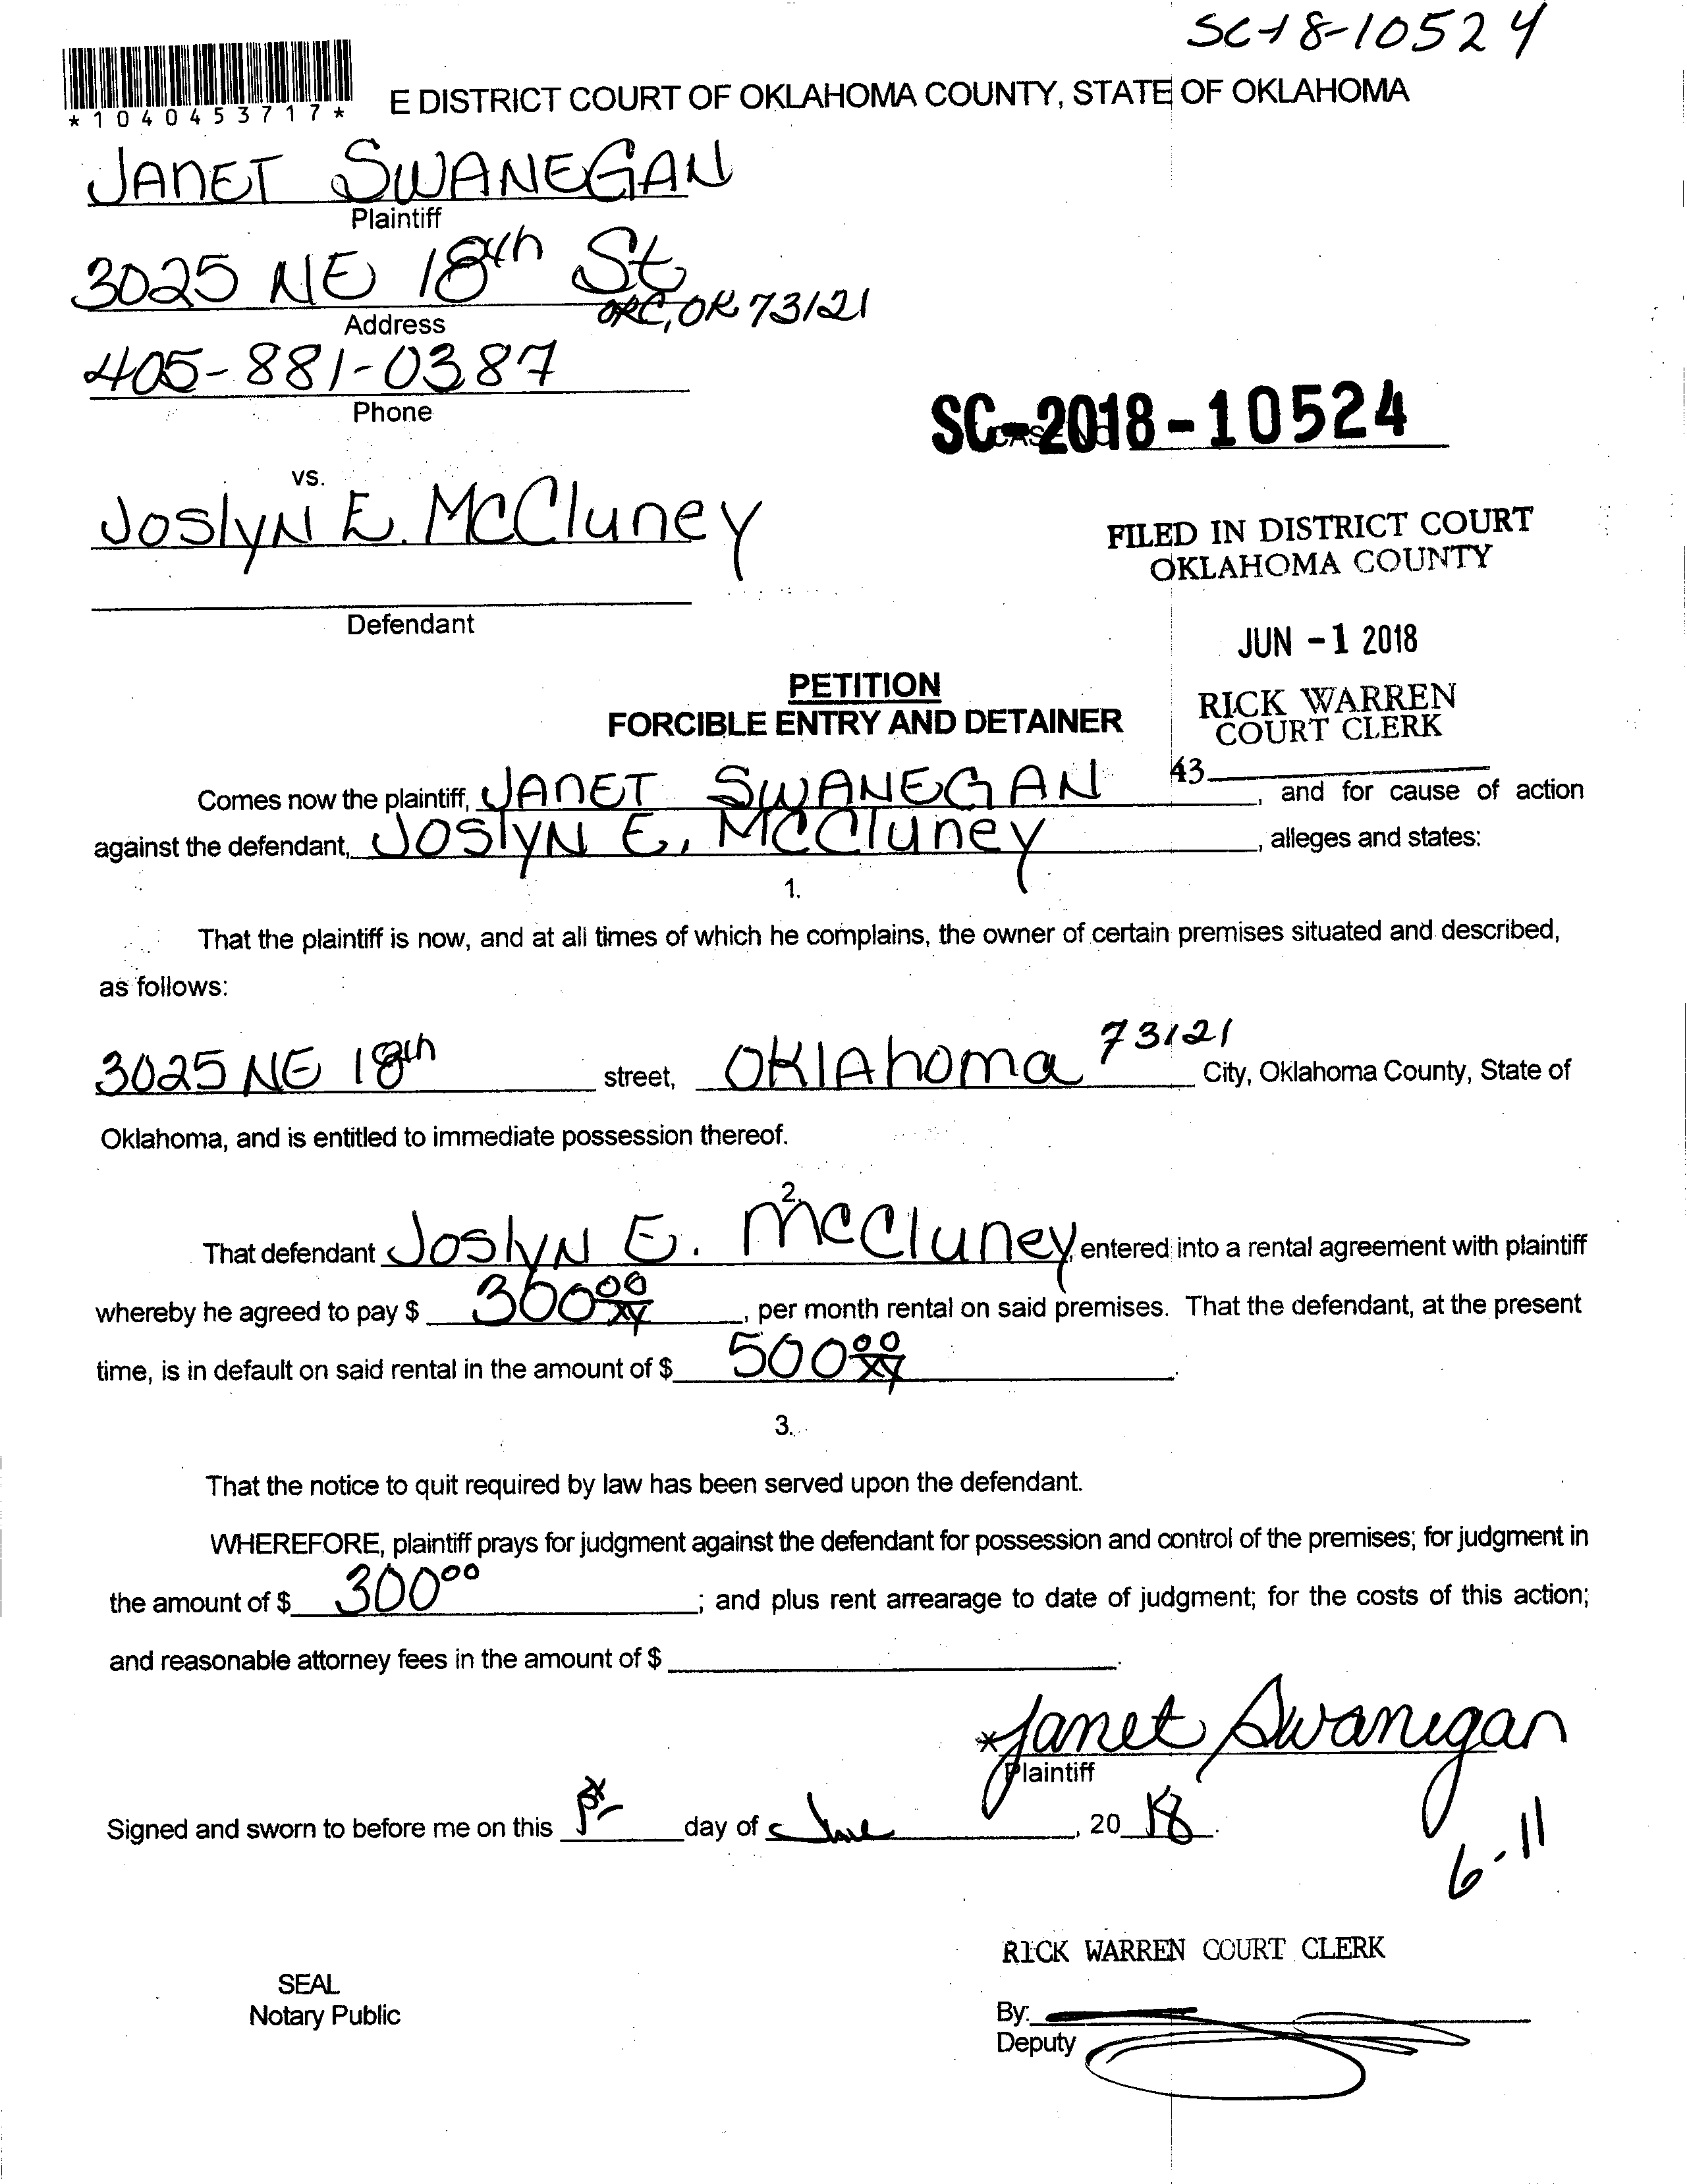 SC-18-10524
*1040453717*
E DISTRICT COURT OF OKLAHOMA COUNTY, STATE OF OKLAHOMA
JANET SWANEGAN
Plaintiff
3025 NE 18th St
OKC, OK 73121
Address
405-881-0387
Phone
SC-2018-10524
vs.
Joslyn E. McCluney
FILED IN DISTRICT COURT
OKLAHOMA COUNTY
Defendant
JUN -1 2018
PETITION
FORCIBLE ENTRY AND DETAINER
RICK WARREN
COURT CLERK
43
Comes now the plaintiff, JANET SWANEGAN, and for cause of action
against the defendant, Joslyn E. McCluney, alleges and states:
1.
That the plaintiff is now, and at all times of which he complains, the owner of certain premises situated and described,
as follows:
3025 NE 18th street, Oklahoma 73121 City, Oklahoma County, State of
Oklahoma, and is entitled to immediate possession thereof.
2.
That defendant Joslyn E. McCluney, entered into a rental agreement with plaintiff
whereby he agreed to pay $ 300 00/xx, per month rental on said premises. That the defendant, at the present
time, is in default on said rental in the amount of $ 500 00/xx.
3.
That the notice to quit required by law has been served upon the defendant.
WHEREFORE, plaintiff prays for judgment against the defendant for possession and control of the premises; for judgment in
the amount of $ 300 00; and plus rent arrearage to date of judgment; for the costs of this action;
and reasonable attorney fees in the amount of $
*Janet Swanegan
Plaintiff
Signed and sworn to before me on this 1st day of June, 2018.
6-11
RICK WARREN COURT CLERK
SEAL
Notary Public
By:
Deputy